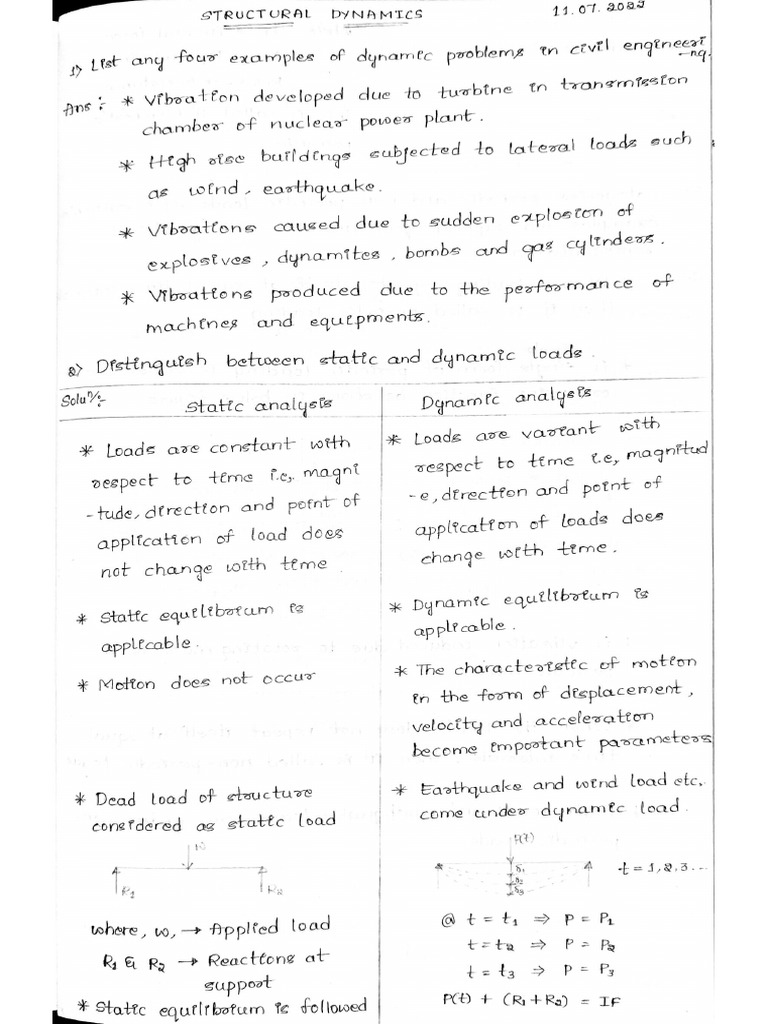 STRUCTURAL DYNAMICS
11.07.2022
1) List any four examples of dynamic problems in civil engineeri
-ng.
Ans :- * Vibration developed due to turbine in transmission
chamber of nuclear power plant.
* High rise buildings subjected to lateral loads such
as wind, earthquake.
* Vibrations caused due to sudden explosion of
explosives, dynamites, bombs and gas cylinders.
* Vibrations produced due to the performance of
machines and equipments.
2) Distinguish between static and dynamic loads.
Solun/:-
Static analysis
* Loads are constant with
respect to time i.e, magni
-tude, direction and point of
application of load does
not change with time.
* Static equilibrium is
applicable.
* Motion does not occur
* Dead load of structure
considered as static load
R1
R2
where, w, → Applied load
R1 & R2 → Reactions at
support
* Static equilibrium is followed
Dynamic analysis
* Loads are variant with
respect to time i.e, magnitud
-e, direction and point of
application of loads does
change with time.
* Dynamic equilibrium is
applicable.
* The characteristic of motion
in the form of displacement,
velocity and acceleration
become important parameters
* Earthquake and wind load etc.
come under dynamic load.
P(t)
δ1
δ2
δ3
t = 1, 2, 3...
@ t = t1 ⇒ P = P1
t = t2 ⇒ P = P2
t = t3 ⇒ P = P3
P(t) + (R1 + R2) = IF